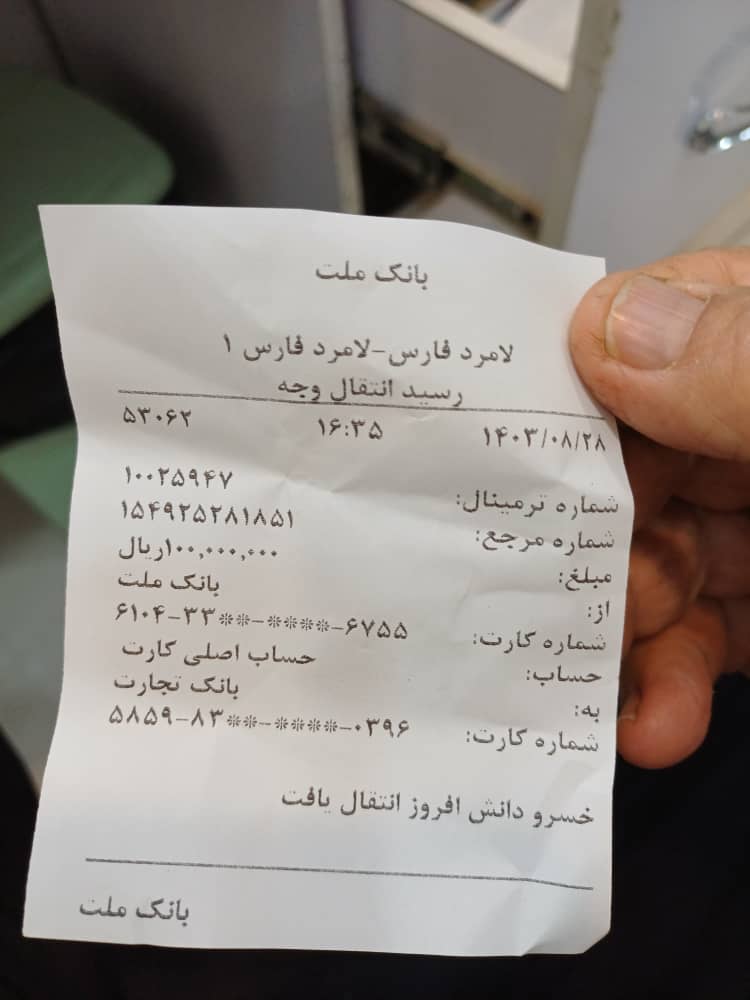 بانک ملت
لامرد فارس-لامرد فارس ۱
رسید انتقال وجه
۱۴۰۳/۰۸/۲۸ ۱۶:۳۵ ۵۳۰۶۲
شماره ترمینال: ۱۰۰۲۵۹۴۷
شماره مرجع: ۱۵۴۹۲۵۲۸۱۸۵۱
مبلغ: ۱۰۰,۰۰۰,۰۰۰ریال
از: بانک ملت
شماره کارت: ۶۱۰۴-۳۳**-****-۶۷۵۵
حساب: حساب اصلی کارت
به: بانک تجارت
شماره کارت: ۵۸۵۹-۸۳**-****-۰۳۹۶
خسرو دانش افروز انتقال یافت
بانک ملت